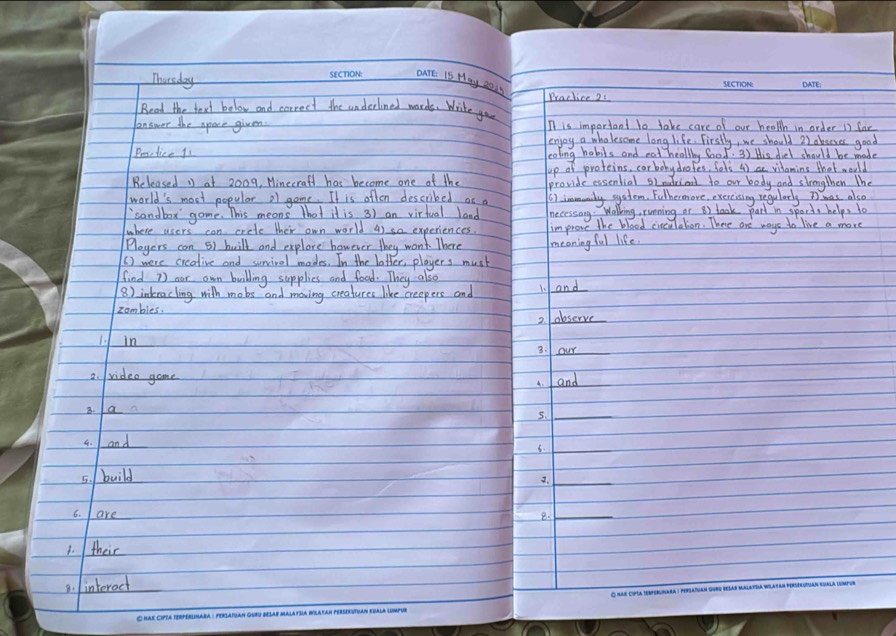 Thursday
SECTION:
DATE: 15 May 2025
Read the text below and correct the underlined words. Write your
answer the space given.
Practice 1:
Released 1) at 2009, Minecraft has become one of the
world's most popular 2) game. It is often described as a
'sandbox' game. This means that it is 3) an virtual land
where users can crete their own world 4) so experiences.
Players can 5) built and explore however they want. There
6) were creative and survival modes. In the latter, players must
find 7) our own builing supplies and food. They also
8) interacting with mobs and moving creatures like creepers and
zombies.
1. in
2. video game
3. a
4. and
5. build
6. are
7. their
8. interact
© HAK CIPTA TERPERLIHARA | PERSATUAN GURU BESAR MALAYSIA WILAYAH PERSEKUTUAN KUALA LUMPUR
SECTION:
DATE:
Practice 2:
It is important to take care of our health in order 1) for
enjoy a wholesome long life. Firstly, we should 2) observes good
eating habits and eat healthy food. 3) His diet should be made
up of proteins, carbohydrates, fats 4) or vitamins that would
provide essential 5) nutrient to our body and strengthen the
6) immunity system. Futhermore, exercising regularly 7) was also
necessary. Walking, running or 8) took part in sports helps to
improve the blood circulation. There are ways to live a more
meaningful life.
1. and
2. observe
3. our
4. and
5.
6.
7.
8.
© HAK CIPTA TERPERLIHARA | PERSATUAN GURU BESAR MALAYSIA WILAYAH PERSEKUTUAN KUALA LUMPUR